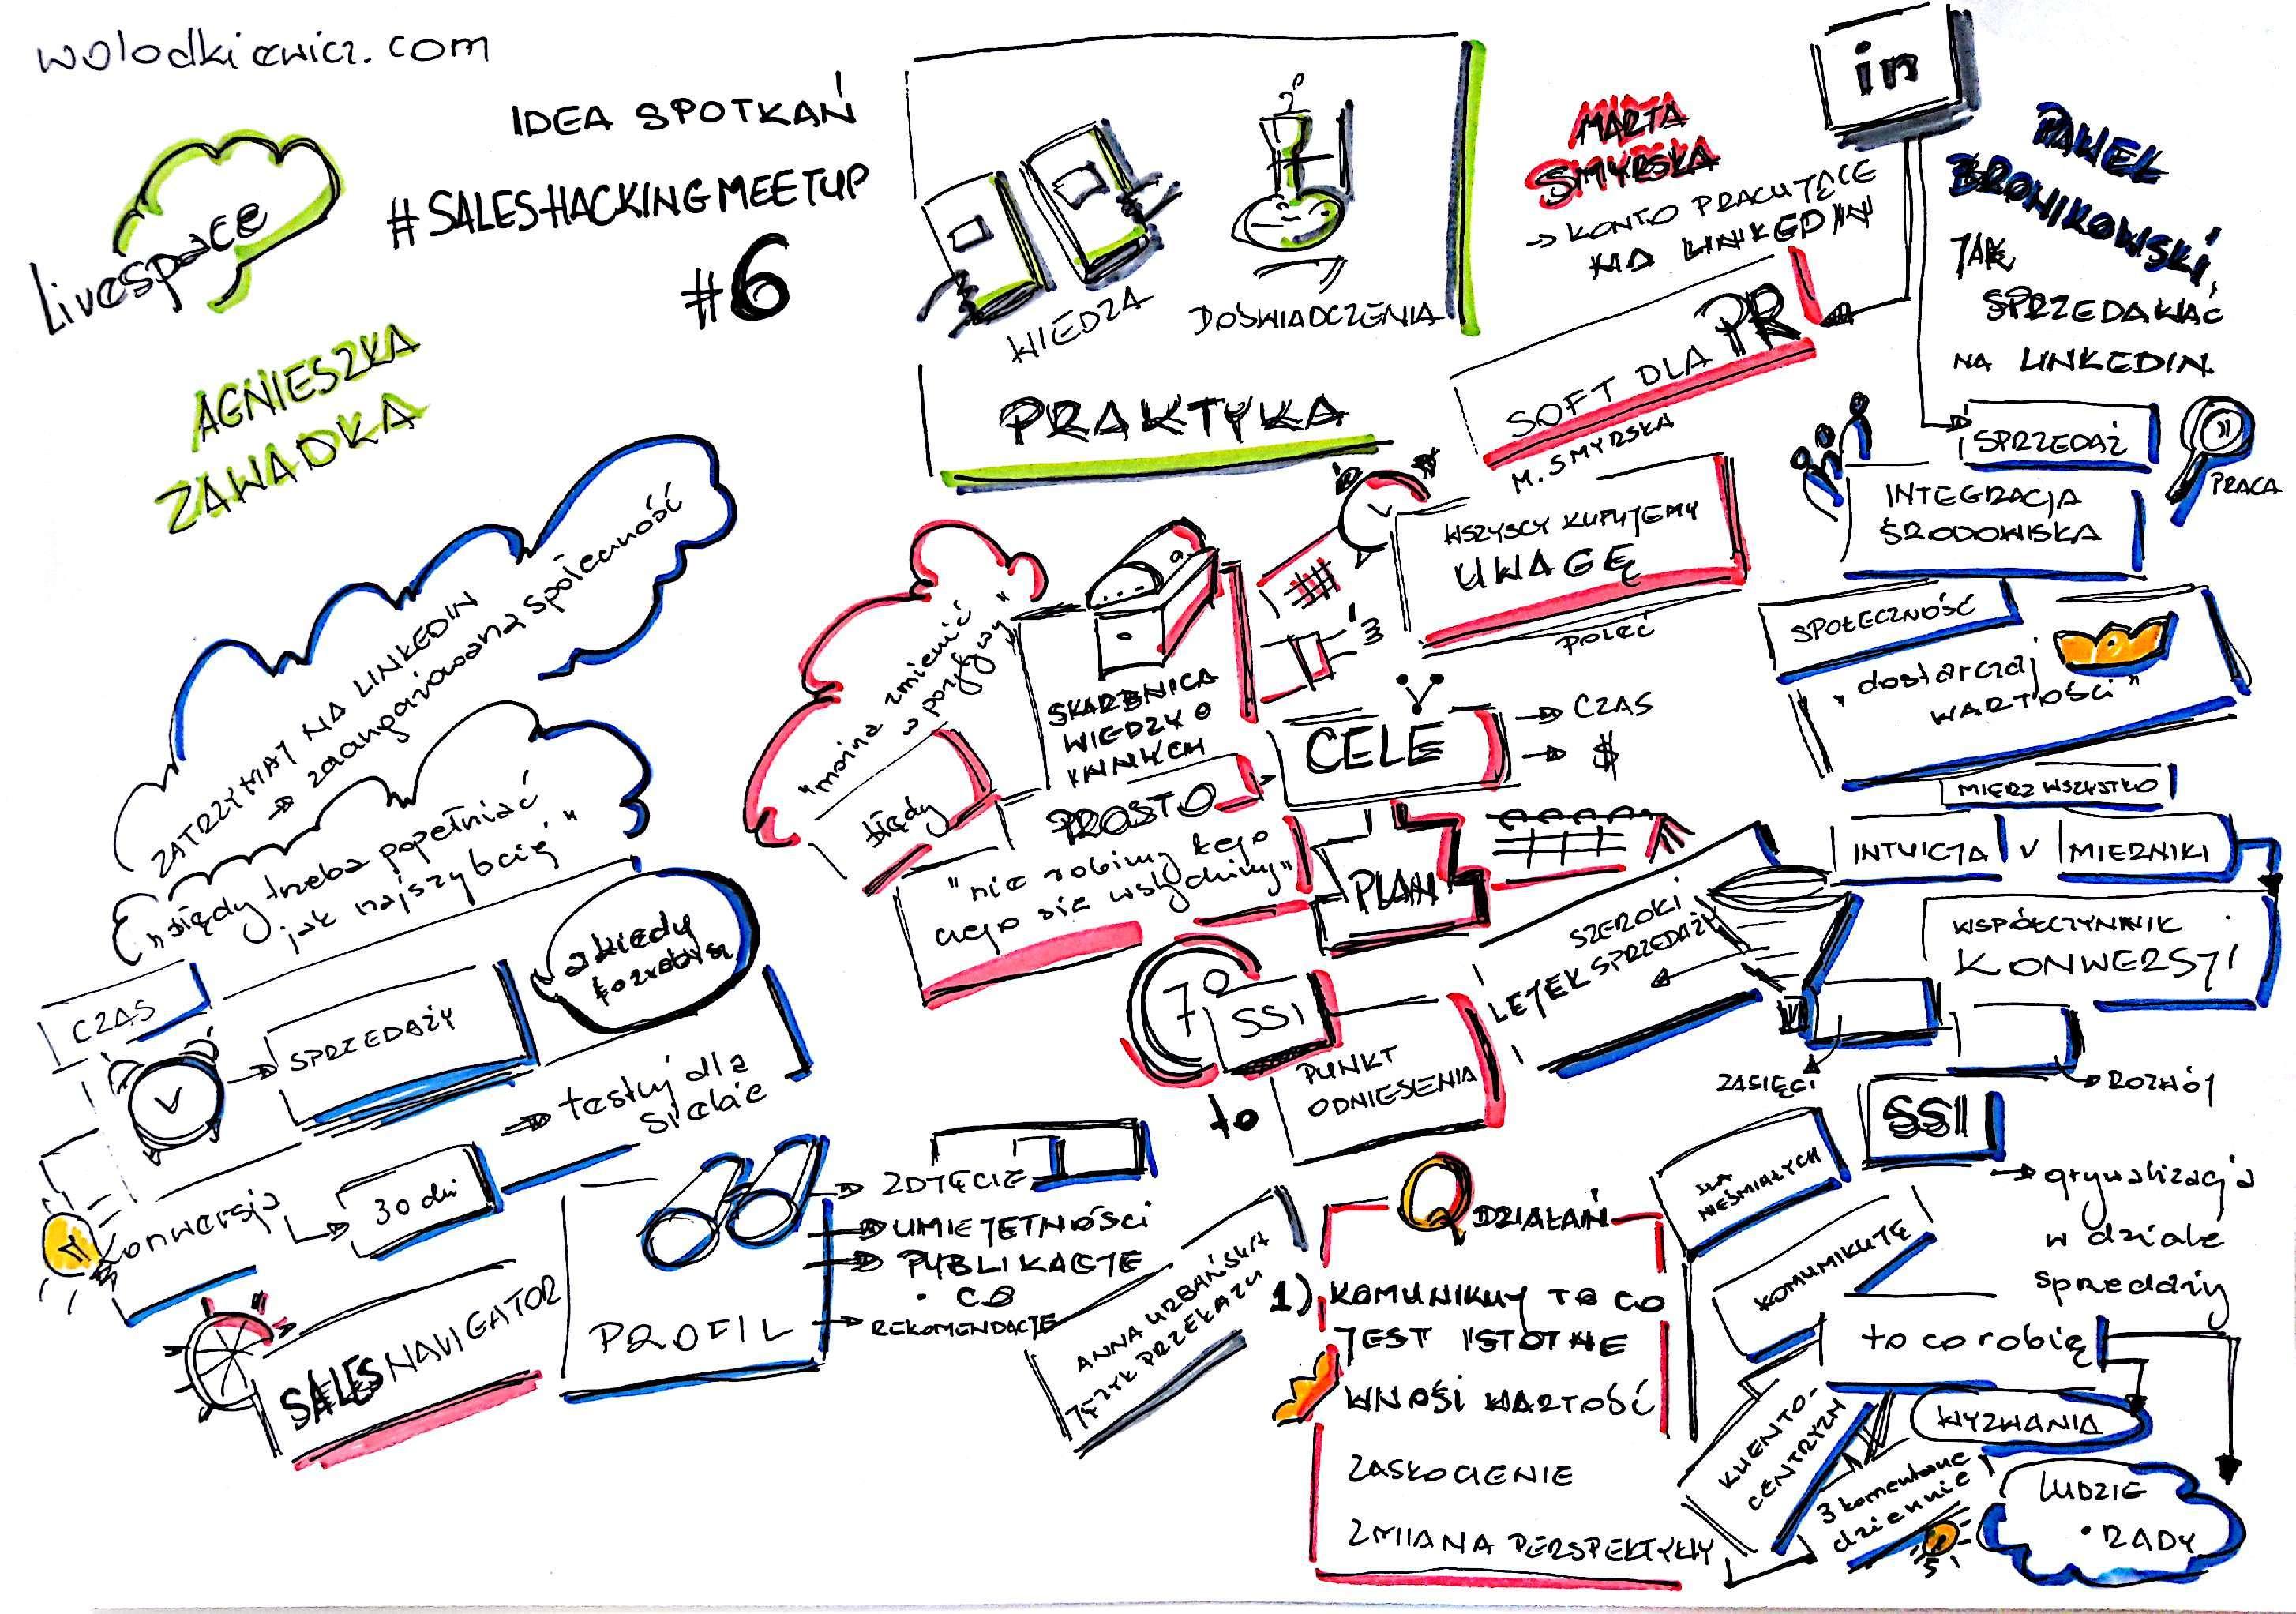 wolodkiewicz.com
IDEA SPOTKAŃ
#SALESHACKINGMEETUP
#6
Livespace
AGNIESZKA
ZAWADKA
WIEDZA
DOŚWIADCZENIA
PRAKTYKA
MARTA
SMYRSKA
→ KONTO PRACUJĄCE
NA LINKEDIN
in
PAWEŁ
BRONIKOWSKI
JAK
SPRZEDAWAĆ
NA LINKEDIN
SOFT DLA PR
M. SMYRSKA
WSZYSCY KUPUJEMY
UWAGĘ
POLEĆ
SPRZEDAŻ
PRACA
INTEGRACJA
ŚRODOWISKA
SPOŁECZNOŚĆ
"dostarczaj
WARTOŚCI"
MIERZ WSZYSTKO
INTUICJA V MIERNIKI
WSPÓŁCZYNNIK
KONWERSJI
ZATRZYMAJ NA LINKEDIN
→ zaangażowana społeczność
"błędy trzeba popełniać
jak najszybciej"
CZAS
→ SPRZEDAŻY
a kiedy
to zrobisz
→ testuj dla
siebie
konwersja
→ 30 dni
SALES NAVIGATOR
PROFIL
→ ZDJĘCIE
→ UMIEJĘTNOŚCI
→ PUBLIKACJE
• CO
→ REKOMENDACJE
ANNA URBAŃSKA
JĘZYK PRZEKAZU
"można zmienić
w pozytywy"
błędy
SKARBNICA
WIEDZY O
INNYCH
PROSTO
"nie robimy tego
czego się wstydzimy"
3
CELE
→ CZAS
→ $
PLAN
70
SSI
to
PUNKT
ODNIESIENIA
SZEROKI
LEJEK SPRZEDAŻY
ZASIĘGI
ROZWÓJ
SSI
→ grywalizacja
w dziale
sprzedaży
DLA
NIEŚMIAŁYCH
KOMUNIKUJĘ
to co robię
WYZWANIA
LUDZIE
• RADY
KLIENTO-
CENTRYZM
3 komentarze
dziennie
Q DZIAŁAŃ
1) KOMUNIKUJ TO CO
JEST ISTOTNE
WNOSI WARTOŚĆ
ZASKOCZENIE
ZMIANA PERSPEKTYWY